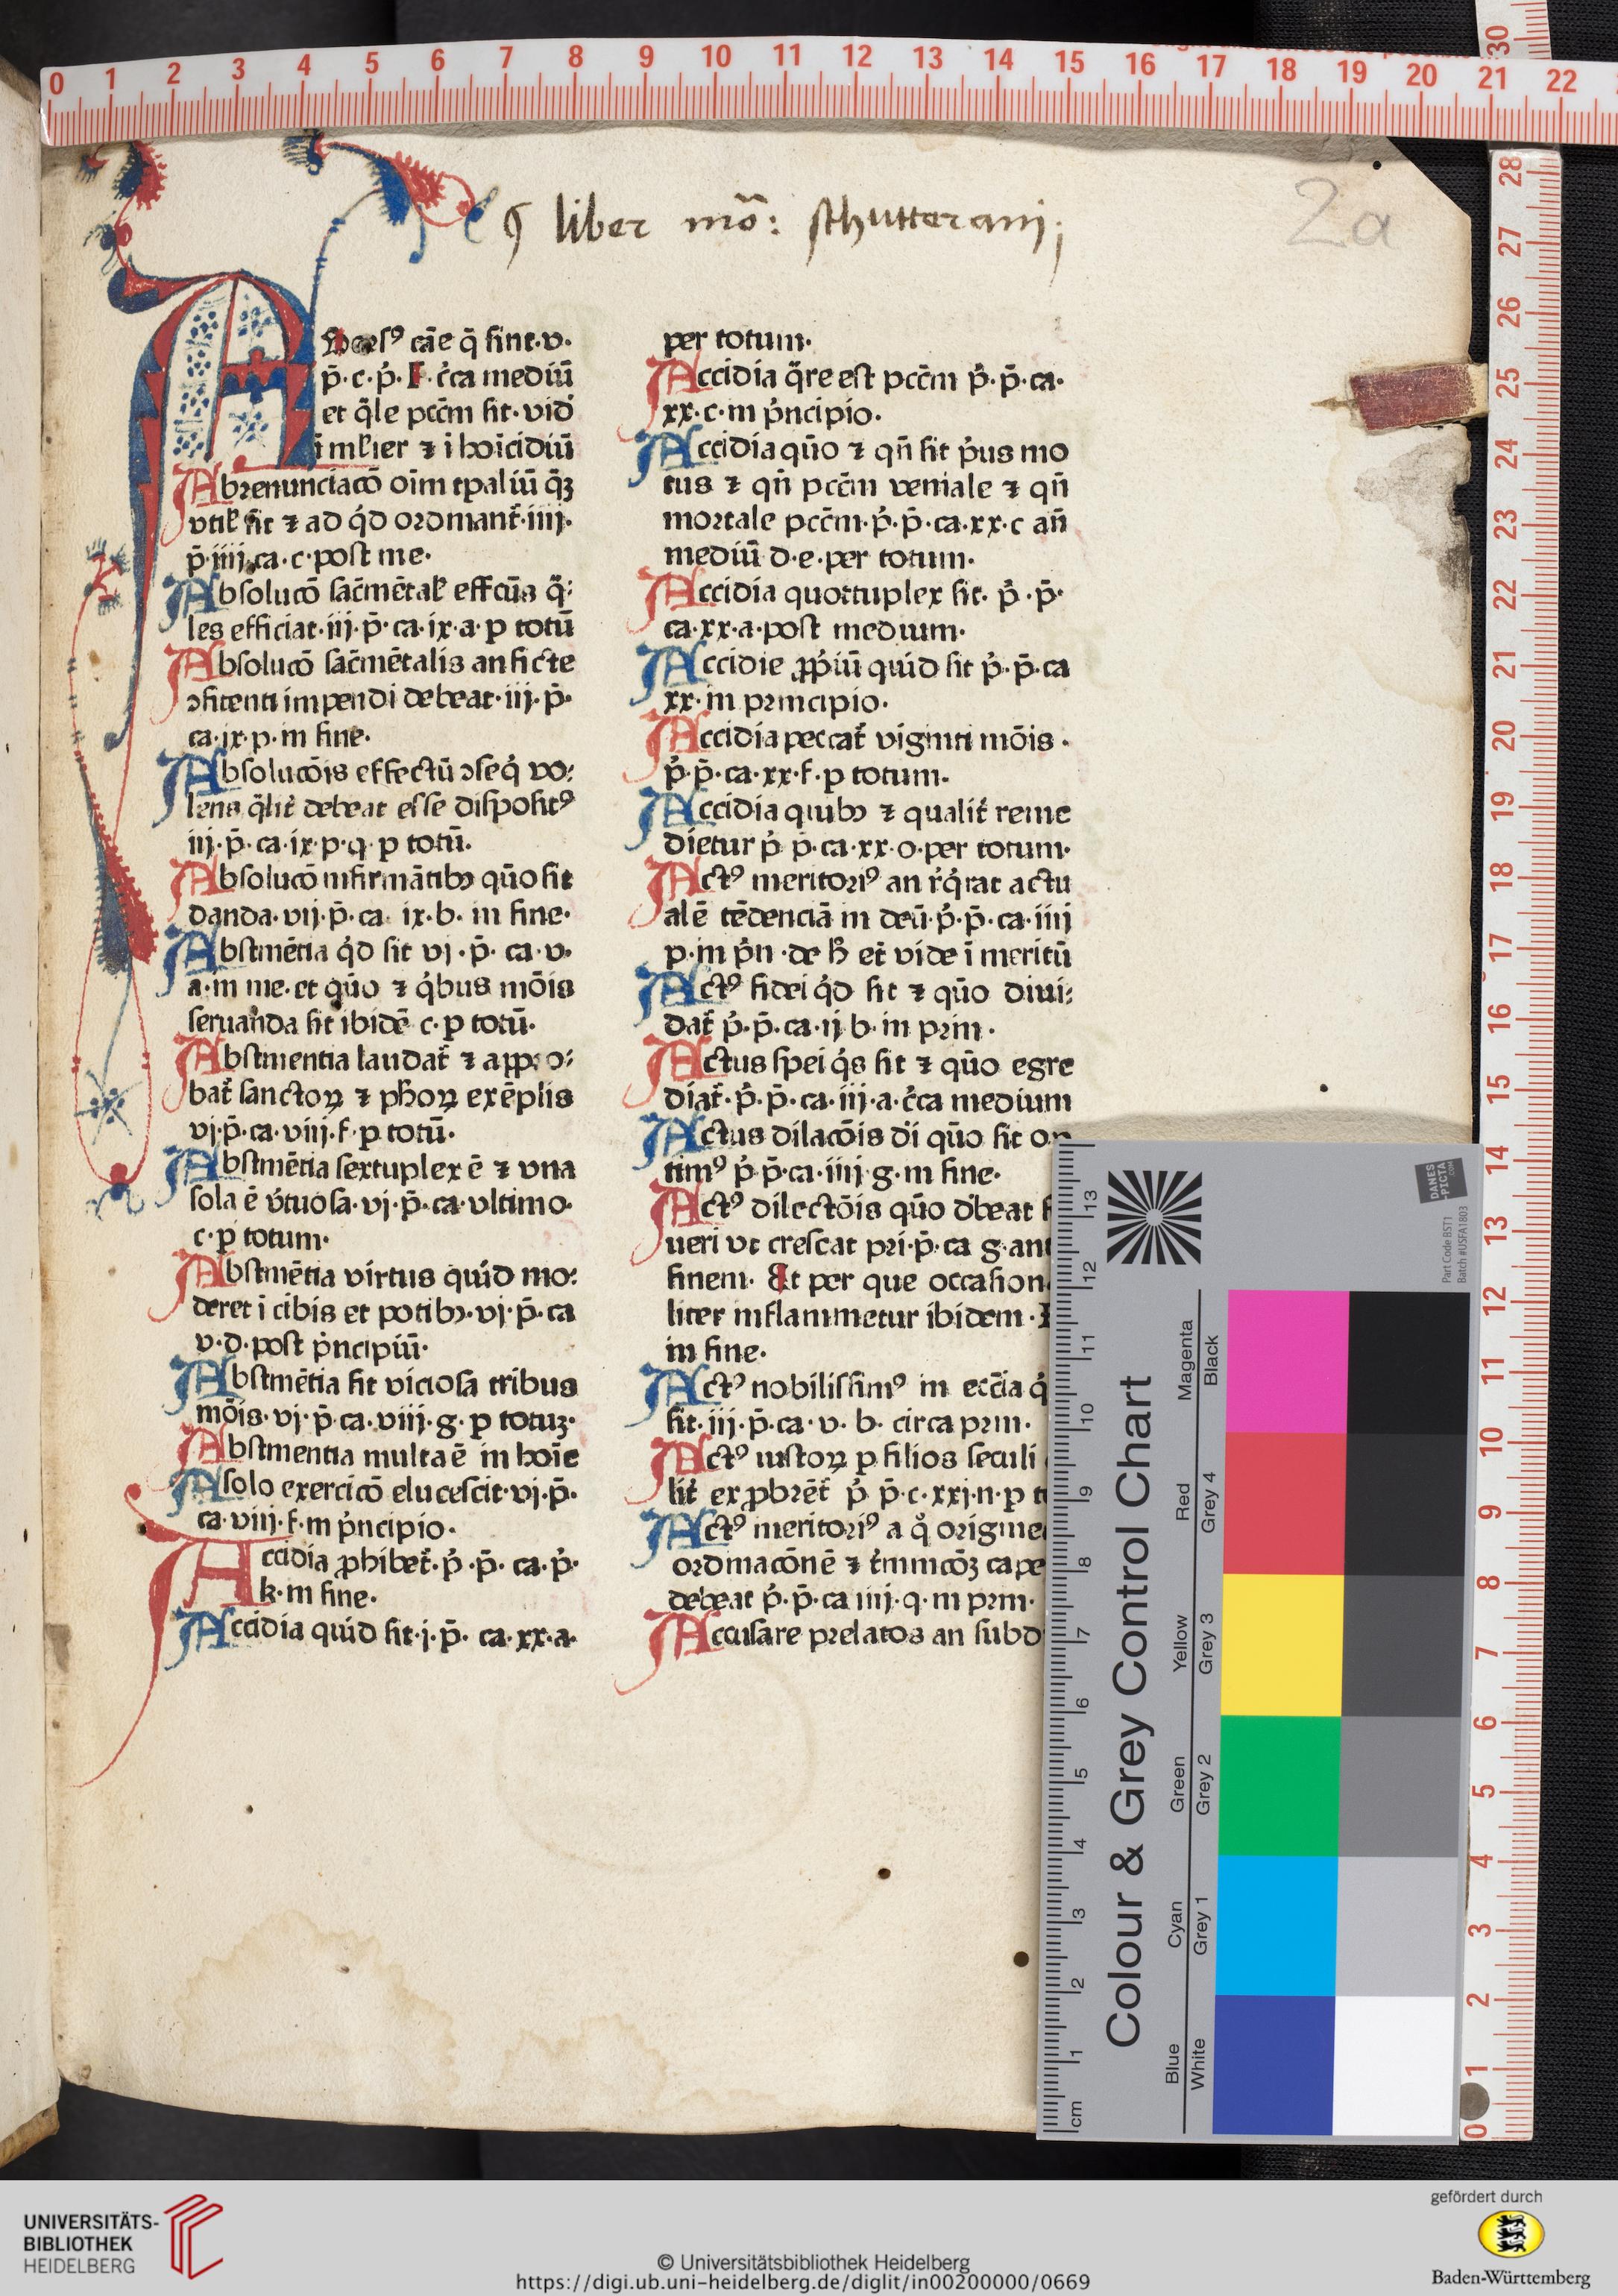 0 1 2 3 4 5 6 7 8 9 10 11 12 13 14 15 16 17 18 19 20 21 22
liber mō: schutterani;
2a
cāe q̄ sint·v·
p̄·c·p̍· c̍ca mediū
et q̄le pccm̄ sit·vid̍
ī ml̍ier ⁊ ī hoīcidiū
Abrenunciacō oīm tpaliū q̄ꝫ
vtil̍ sit ⁊ ad q̍d ordinant̍·iiij·
p̄·iiij·ca·c·post me·
Absolucō sac̄mētal̍ effcūs q̄⸗
les efficiat·iij·p̄·ca·ix·a·p totū
Absolucō sac̄mētalis an ficte
ɔfitenti impendi debeat·iij·p̄·
ca·ix·p·in fine·
Absolucōis effectū ɔseq̍ vo⸗
lens q̄lit̍ debeat esse disposit⁹
iij·p̄·ca·ix·p·q·p totū·
Absolucō infirmātibꝫ quō sit
danda·vij·p̄·ca·ix·b·in fine·
Abstinētia q̍d sit vj·p̄·ca·v·
a·in me·et quō ⁊ q̍bus mōis
seruanda sit ibidē c·p totū·
Abstinentia laudat̍ ⁊ appro⸗
bat̍ sanctoꝝ ⁊ ph̄oꝝ exēplis
vj·p̄·ca·viij·f·p totū·
Abstinētia sextuplex ē ⁊ vna
sola ē v̍tuosa·vj·p̄·ca·vltimo·
c·p totum·
Abstinētia virtus quid mo⸗
deret ī cibis et potibꝫ·vj·p̄·ca
v·d·post p̍ncipiū·
Abstinētia fit viciosa tribus
mōis·vj·p̄·ca·viij·g·p totuꝫ·
Abstinentia multa ē in hoīe
A solo exercicō elucescit·vj·p̄·
ca·viij·f·in p̍ncipio·
Accidia ꝓhibet̍·p̍·p̄·ca·p̍·
k·in fine·
Accidia quid sit·j·p̄·ca·xx·a·
per totum·
Accidia q̄re est pccm̄ p̍·p̄·ca·
xx·c·in p̍ncipio·
Accidia quō ⁊ qn̄ sit p̍us mo
tus ⁊ qn̄ pccm̄ veniale ⁊ qn̄
mortale pccm̄·p̍·p̄·ca·xx·c an̄
mediū d·e·per totum·
Accidia quottuplex sit·p̍·p̄·
ca·xx·a·post medium·
Accidie ꝓp̍iū quid sit p̍·p̄·ca
xx·in principio·
Accidia peccat̍ viginti mōis·
p̍·p̄·ca·xx·f·p totum·
Accidia quibꝫ ⁊ qualit̍ reme
dietur p̍ p̄·ca·xx·o·per totum·
Act⁹ meritori⁹ an r̍q̍rat actu
alē tēdenciā in deū·p̍·p̄·ca·iiij
p·in p̍n·de h̄ et vide ī meritū
Act⁹ fidei q̍d sit ⁊ quō diui⸗
dat̍ p̍·p̄·ca·ij b·in prin·
Actus spei q̍s sit ⁊ quō egre
diat̍·p̍·p̄·ca·iij·a·c̍ca medium
Actus dilacōis di quō sit op
tim⁹ p̍·p̄·ca·iiij·g·in fine·
Act⁹ dilectōis quō d̍beat
ueri vt crescat pri·p̄·ca g·ant
finem· Et per que occasion
liter inflammetur ibidem·
in fine·
Act⁹ nobilissim⁹ in ecc̄ia q̍
sit·iij·p̄·ca·v·b·circa prin·
Act⁹ iustoꝝ p filios seculi
lit̍ exꝓbrēt̍ p̍ p̄·c·xxj·n·p t
Act⁹ meritori⁹ a q̊ origine
ordinacōnē ⁊ t̍mincōꝫ cape
debeat p̍·p̄·ca iiij·q·in prin·
Accusare prelatos an subd
Colour & Grey Control Chart
Magenta Black
Red Grey 4
Yellow Grey 3
Green Grey 2
Cyan Grey 1
Blue White
cm 1 2 3 4 5 6 7 8 9 10 11 12 13
DANES
-PICTA
.COM
Part Code BST1
Batch #USFA1803
30
28 27 26 25 24 23 22 21 20 19 18 17 16 15 14 13 12 11 10 9 8 7 6 5 4 3 2 1 0
UNIVERSITÄTS-
BIBLIOTHEK
HEIDELBERG
© Universitätsbibliothek Heidelberg
https://digi.ub.uni-heidelberg.de/diglit/in00200000/0669
gefördert durch
Baden-Württemberg